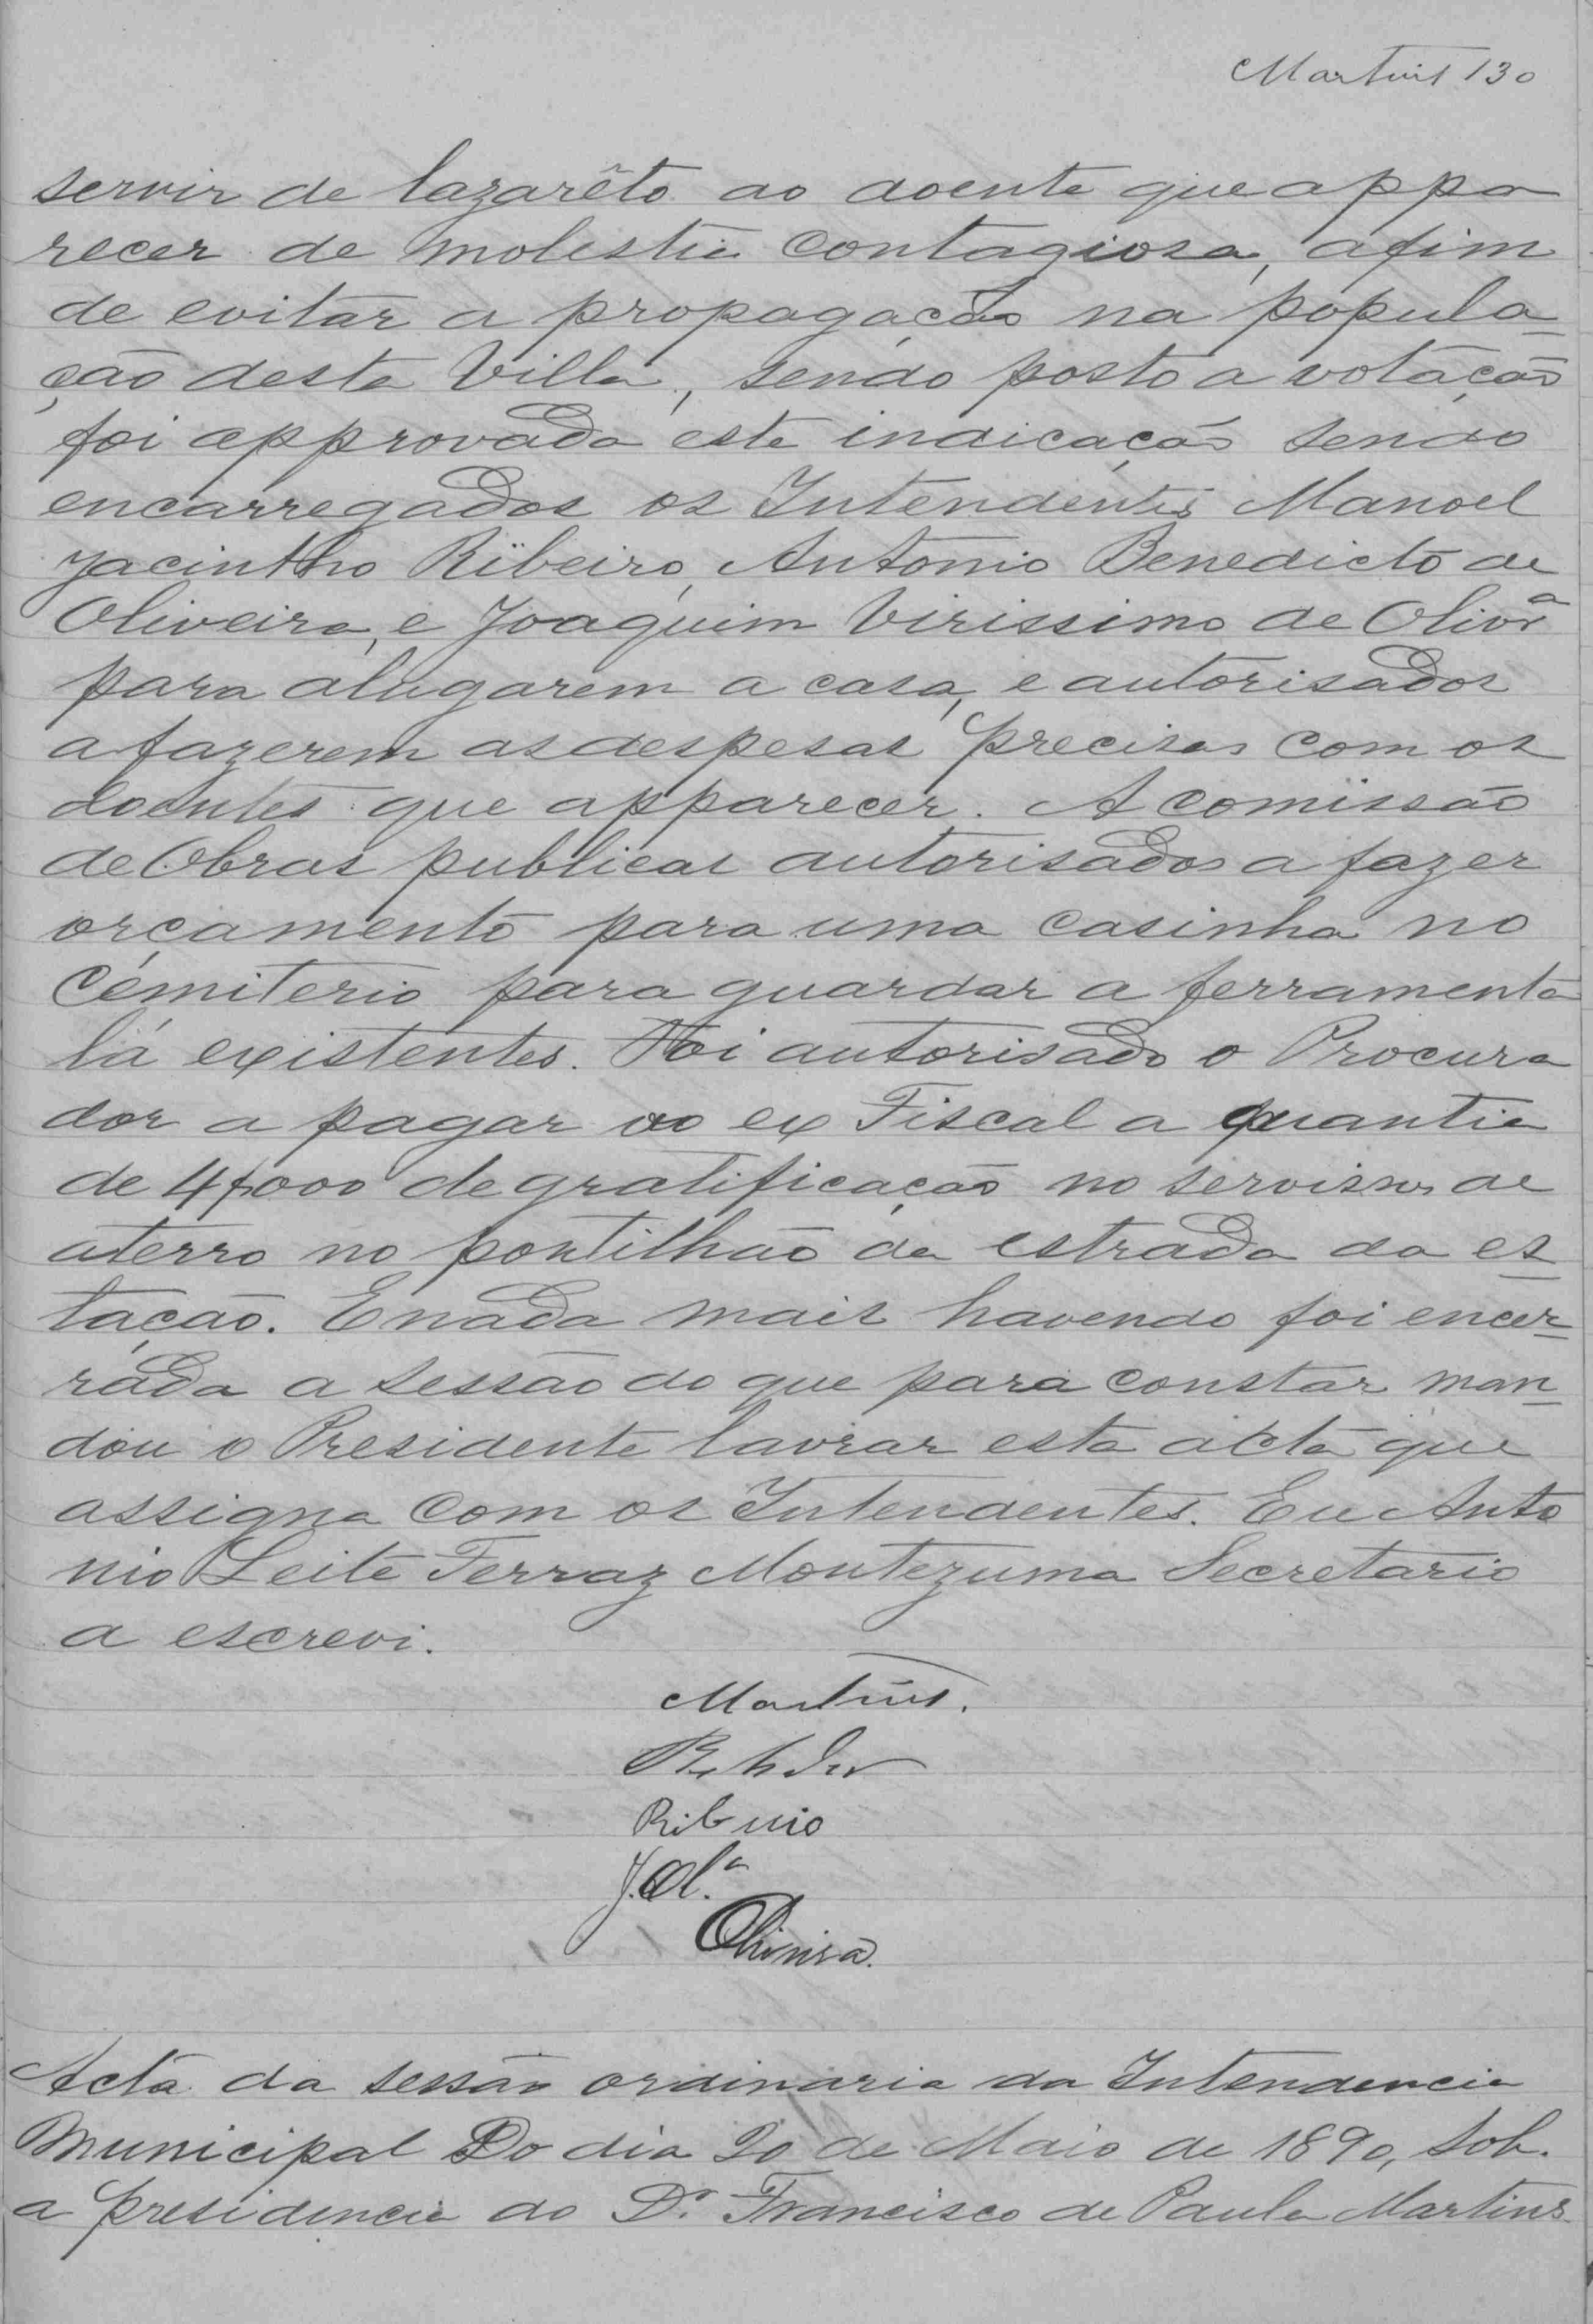 Martins 130
servir de lazarêto ao doente que appa
recer de molestia contagiosa, afim
de evitar a propagação na popula-
ção desta Villa, sendo posto a votação
foi approvada esta indicação sendo
encarregados os Intendentes Manoel
Jacintho Ribeiro, Antonio Benedicto de
Oliveira, e Joaquim Virissimo de Olivrª
para alugarem a casa, e autorisados
a fazerem as despesas precisas com os
doentes que apparecer. A comissão
de Obras publicas autorisados a fazer
orçamento para uma casinha no
Cemiterio para guardar a ferramenta
lá existentes. Foi autorisado o Procura
dor a pagar ao ex Fiscal a quantia
de 4$000 de gratificação no servisso de
aterro no pontilhão da estrada da es-
tação. E nada mais havendo foi encer-
rada a sessão do que para constar man-
dou o Presidente lavrar esta acta que
assigna com os Intendentes. Eu Anto
nio Leite Ferraz Montezuma Secretario
a escrevi.
Martins.
Rehder
Ribeiro
J. Olª
Oliveira.
Acta da sessão ordinaria da Intendencia
Municipal Do dia 20 de Maio de 1890, sob.
a presidencia do Dr. Francisco de Paula Martins